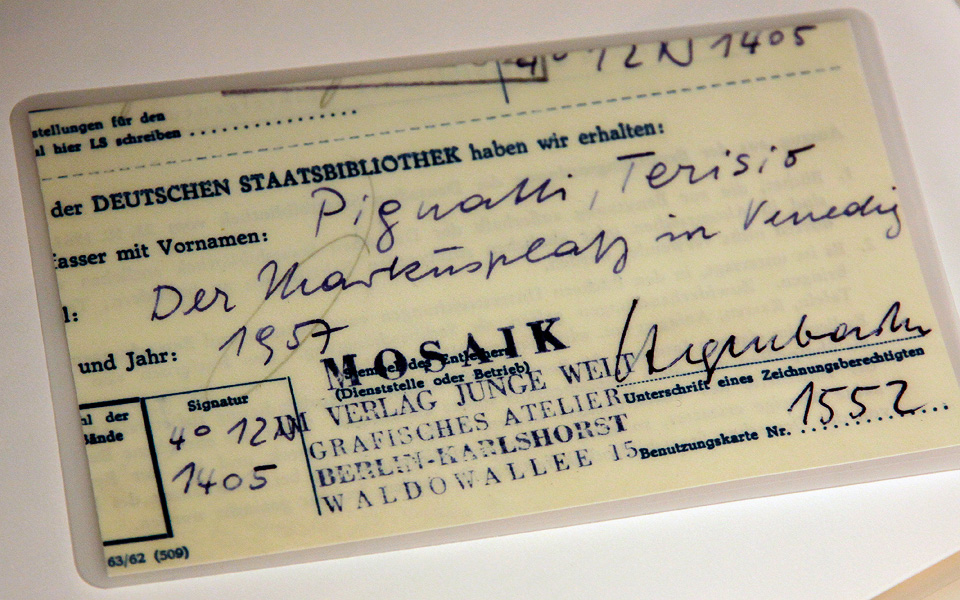 4° 12 N 1405
stellungen für den
al hier LS schreiben
der DEUTSCHEN STAATSBIBLIOTHEK haben wir erhalten:
asser mit Vornamen: Pignatti, Terisio
l: Der Markusplatz in Venedig
und Jahr: 1957
MOSAIK
Stempel des Entleihers
(Dienststelle oder Betrieb)
IM VERLAG JUNGE WELT
GRAFISCHES ATELIER
BERLIN-KARLSHORST
WALDOWALLEE 15
Unterschrift eines Zeichnungsberechtigten
Benutzungskarte Nr. 1552
hl der
Bände
Signatur
4° 12 N
1405
63/62 (509)